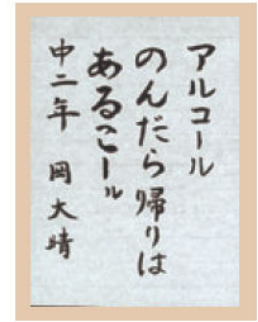 アルコール
のんだら帰りは
あるこール
中二年 岡大晴